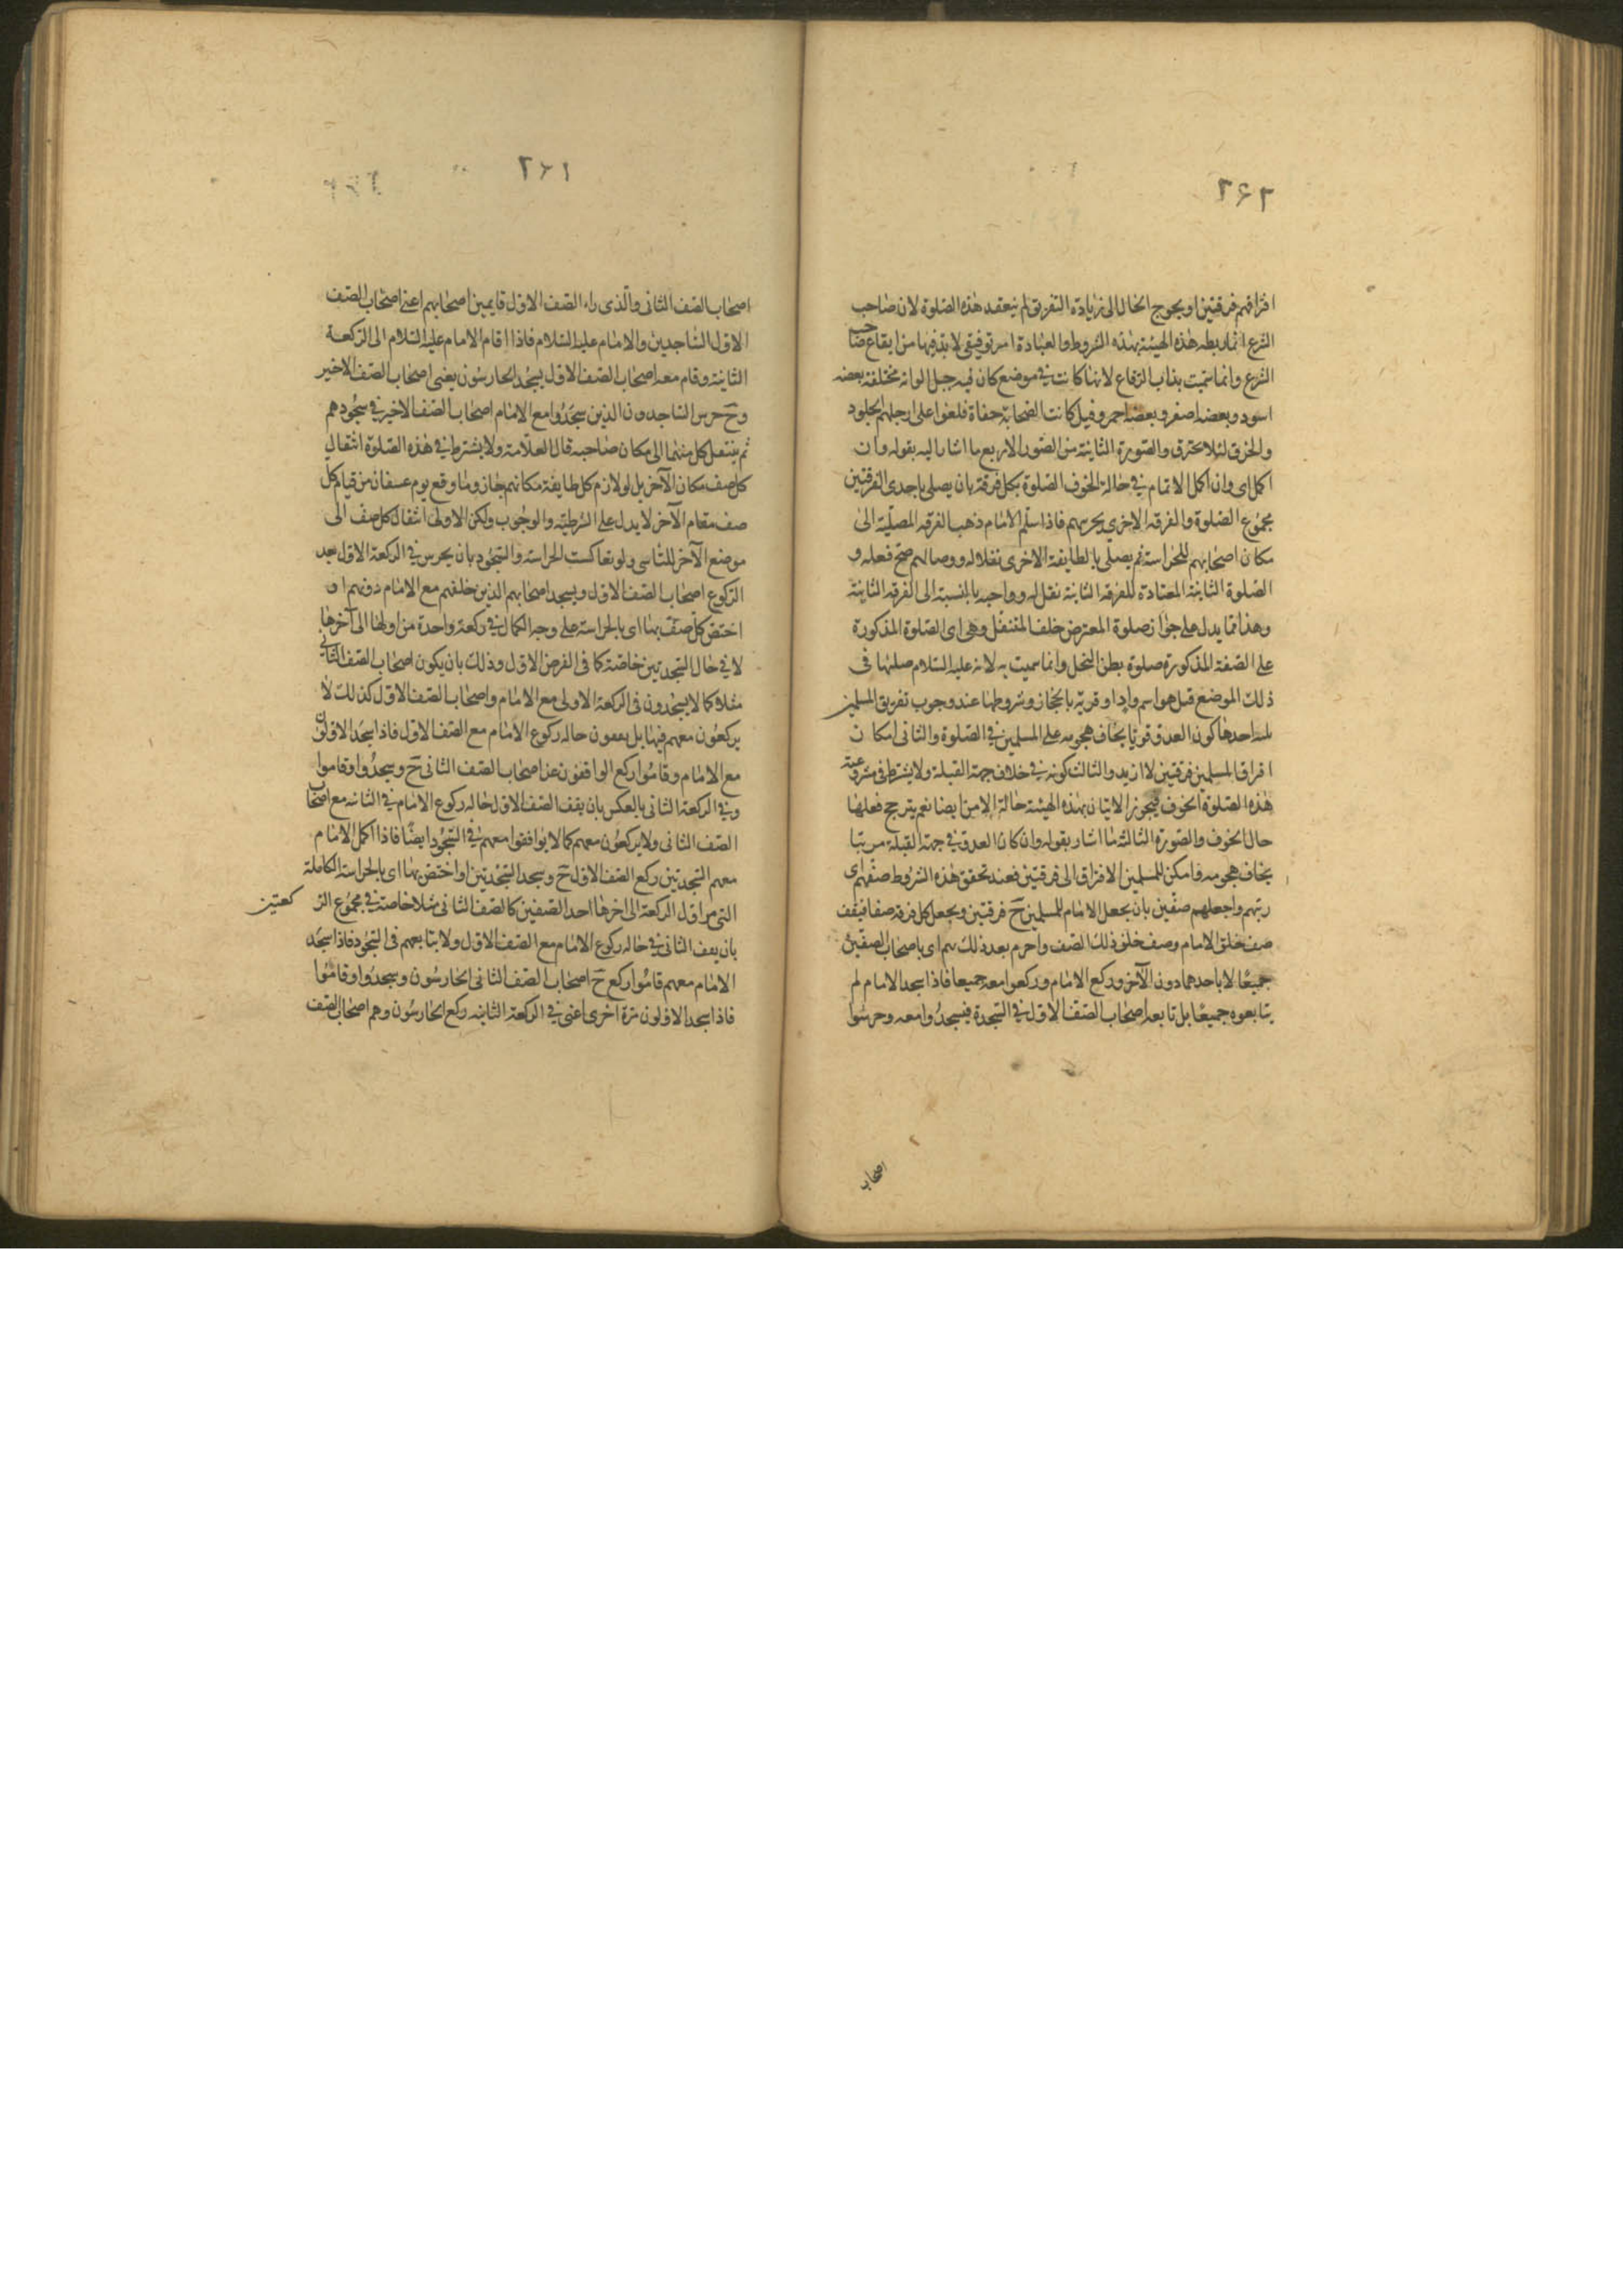 ٢٦٢
افتراقهم فرقتين او يحوج الحال الى زيادة التفريق لم ينعقد هذه الصلوة لان صاحب
الشرع انما ربط هذه الهيئة بهذه الشروط والعبادة امر توقيفى لا بد فيها من ايقاع صاحب
الشرع وانما سميت بذات الرقاع لانها كانت في موضع كان فيه جبل الوانه مختلفة بعضه
اسود وبعضه اصفر وبعضه احمر وقيل كانت الصحابة حفاة فلفوا على ارجلهم الجلود
والخرق لئلا يحترق والصورة الثانية من الصور الاربع ما اشار اليه بقوله وان
اكمل اى وان اكمل الامام في حالة الخوف الصلوة بكل فرقة بان يصلى باحدى الفرقتين
مجموع الصلوة والفرقه الاخرى يحرسهم فاذا سلم الامام ذهب الفرقه المصلية الى
مكان اصحابهم للحراسة ثم يصلى بالطايفة الاخرى نفلا له ووصا لهم صح فعله و
الصلوة الثانية المعتادة للفرقه الثانية نفل له وواجبه بالنسبة الى الفرقه الثانية
وهذا مما يدل على جواز صلوة المفترض خلف المتنفل وهى اى الصلوة المذكورة
على الصفة المذكورة صلوة بطن النخل وانما سميت به لانه عليه السلام صلاها فى
ذلك الموضع قيل هو اسم واد او قرية بالحجاز وشروطها عند وجوب تفريق المسلمين
ثلثه احدها كون العدو قويا يخاف هجومه على المسلمين في الصلوة والثانى امكان
افتراق المسلمين فرقتين لا ازيد والثالث كونه في خلاف جهة القبلة ولا يشترط في مشروعية
هذه الصلوة الخوف فيجوز الاتيان بهذه الهيئة حالة الامن ايضا نعم يترجح فعلها
حال الخوف والصورة الثالثة ما اشار بقوله وان كان العدو في جهة القبلة مرتبا
يخاف هجومه وامكن للمسلمين الافتراق الى فرقتين فعند تحقق هذه الشروط صفهم اى
رتبهم واجعلهم صفين بان يجعل الامام المسلمين ح فرقتين ويجعل كل فرقه صفا فيقف
صف خلف الامام وصف خلف ذلك الصف واحرم بعد ذلك بهم اى باصحاب الصفين
جميعًا لا باحدهما دون الآخر وركع الامام وركعوا معه جميعا فاذا سجد الامام لم
يتابعوه جميعًا بل تابعه اصحاب الصف الاول في السجدة فيسجدُوا معه وحرسوا
اصحاب
٢٦١
اصحاب الصف الثانى والذى راء الصف الاول قايمين اصحابهم اعنى اصحاب الصف
الاول الساجدين والامام عليه السلام فاذا اقام الامام عليه السلام الى الركعة
الثانية وقام معه اصحاب الصف الاول يسجد الحارسون يعنى اصحاب الصف الاخير
وح حرس الساجدون الذين سجدُوا مع الامام اصحاب الصف الاخير في سجودهم
ثم ينتقل كل منهما الى مكان صاحبه قال العلامة ولا يشترط في هذه الصلوة انتقال
كل صف مكان الآخر بل لو لازم كل طايفة مكانهم جاز وما وقع يوم عسفان من قيام كل
صف مقام الآخر لا يدل على الشرطيّه والوجوب ولكن الاولى انتقال كل صف الى
موضع الآخر للتأسى ولو تعاكست الحراسه والسجود بان يحرس في الركعة الاول بعد
الركوع اصحاب الصف الاول ويسجد اصحابهم الذين خلفهم مع الامام دونهم او
اختص كل صف بها اى بالحراسة على وجه الكمال في ركعة واحدة من اولها الى آخرها
لا في حال السجدتين خاصة كما فى الفرض الاول وذلك بان يكون اصحاب الصف الثانى
مثلا كما لا يسجدون فى الركعة الاولى مع الامام واصحاب الصف الاول كذلك لا
يركعون معهم فيها بل يقفون حاله ركوع الامام مع الصف الاول فاذا سجد الاولون
مع الامام وقاموا ركع الواقفون عن اصحاب الصف الثانى ح وسجدُوا وقاموا
وفي الركعة الثانى بالعكس بان يقف الصف الاول حاله ركوع الامام في الثانيه مع اصحاب
الصف الثانى ولا يركعون معهم كما لا يوافقوا معهم في السجود ايضًا فاذا اكمل الامام
معهم السجدتين ركع الصف الاول ح وسجد السجدتين او اختص بها اى بالحراسة الكاملة
التى من اول الركعة الى اخرها احد الصفين كالصف الثانى مثلا خاصة في مجموع الركعتين
بان يقف الثانى في حاله ركوع الامام مع الصف الاول ولا يتابعهم فى السجود فاذا سجد
الامام معهم قاموا ركع ح اصحاب الصف الثانى الحارسون وسجدُوا وقامُوا
فاذا سجد الاولون مرة اخرى اعنى في الركعة الثانيه ركع الحارسُون وهم اصحاب الصف